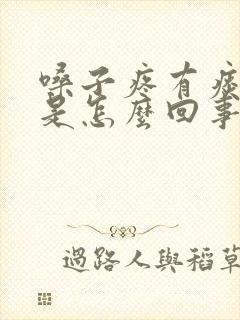 嗓子疼有痰
是怎麼回事
過路人與稻草